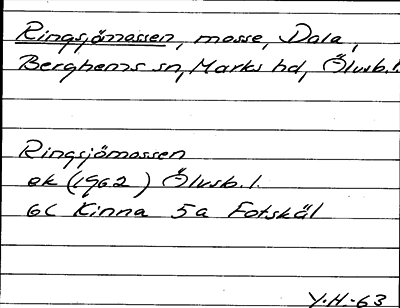 Ringsjömossen, mosse, Dala,
Berghems sn, Marks hd, Älvsb. l.
Ringsjömossen
ek (1962) Älvsb. l.
6C Kinna 5a Fotskäl
Y.H.-63